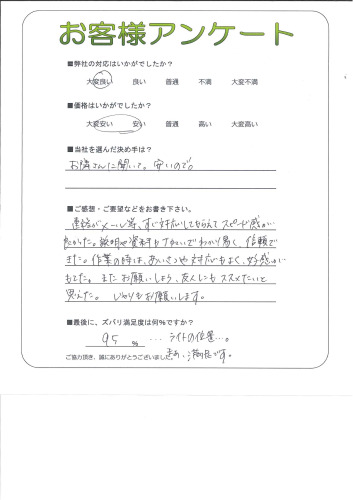 お客様アンケート
■弊社の対応はいかがでしたか？
大変良い 良い 普通 不満 大変不満
■価格はいかがでしたか？
大変安い 安い 普通 高い 大変高い
■当社を選んだ決め手は？
お隣さんに聞いて。安いので。
■ご感想・ご要望などをお書き下さい。
連絡がメール等、すぐ対応してもらえてスピード感が
よかった。説明や資料もていねいでわかり易く、信頼で
きた。作業の時は、あいさつや対応もよく、好感が
もてた。またお願いしよう、友人にもススメたいと
思えた。いつもお願いします。
■最後に、ズバリ満足度は何%ですか？
95 % … ライトの位置…。
まあ、満足です。
ご協力頂き、誠にありがとうございました。